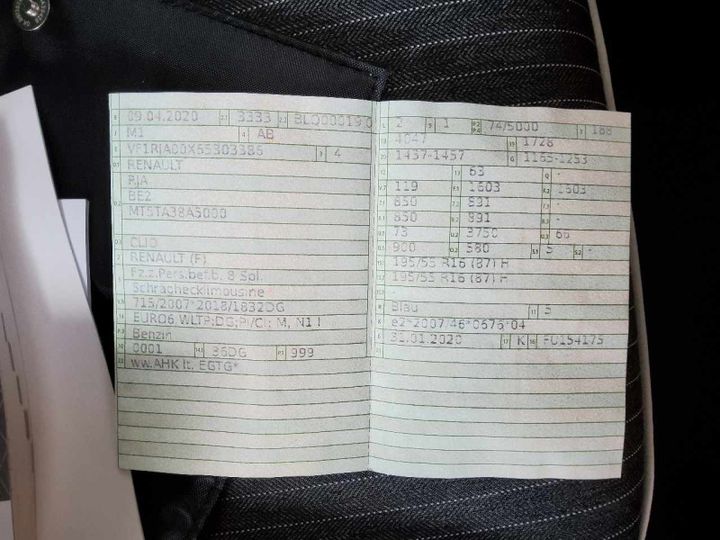 09.04.2020 3333 BLQ00019 0
M1 4 AB
VF1RJA00X65303386 3 4
RENAULT
RJA
BE2
MT5TA38A5000
CLIO
RENAULT (F)
Fz.z.Pers.bef.b. 8 Spl.
Schräghecklimousine
715/2007*2018/1832DG
EURO6;WLTP;DG;PI/CI; M, N1 I
Benzin
0001 36DG 999
ww.AHK lt. EGTG*
2 1 74/5000 188
4047 1728
1437-1457 1165-1253
63 -
119 1603 1603
850 891 -
850 891 -
73 3750 66
900 580 5 -
195/55 R16 (87) H
195/55 R16 (87) H
Blau 5
e2*2007/46*0676*04
31.01.2020 K FU154175